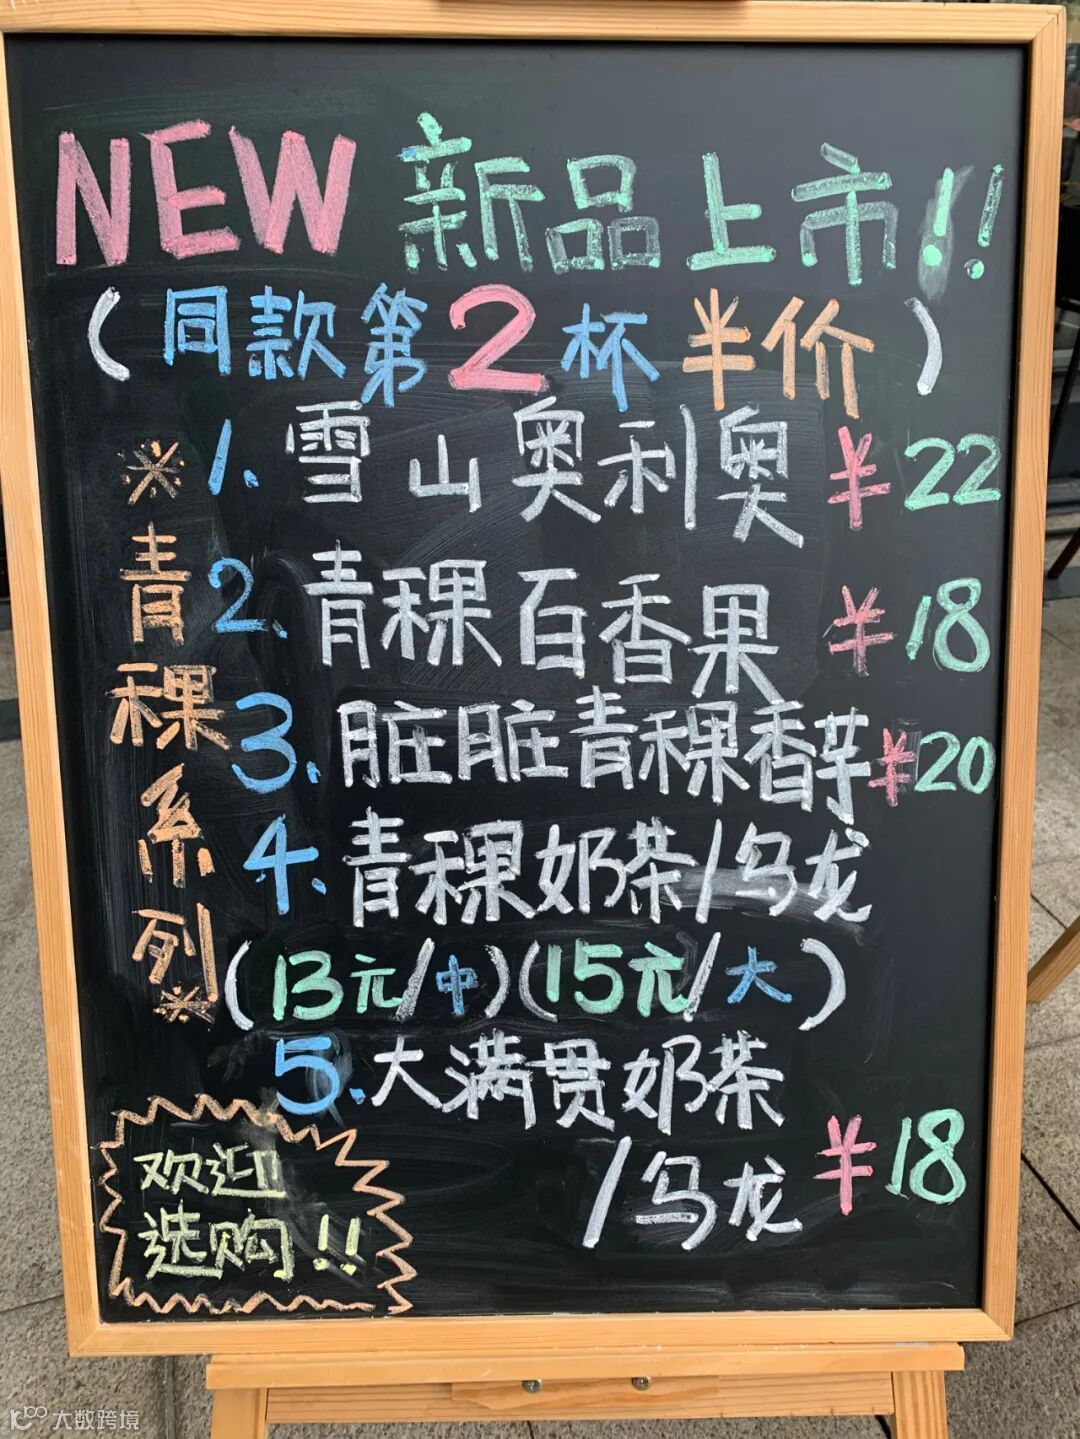 NEW 新品上市!!
(同款第2杯半价)
※青稞系列※
1.雪山奥利奥 ¥22
2.青稞百香果 ¥18
3.脏脏青稞香芋 ¥20
4.青稞奶茶/乌龙
(13元/中)(15元/大)
5.大满贯奶茶
/乌龙 ¥18
欢迎
选购!!
大数跨境